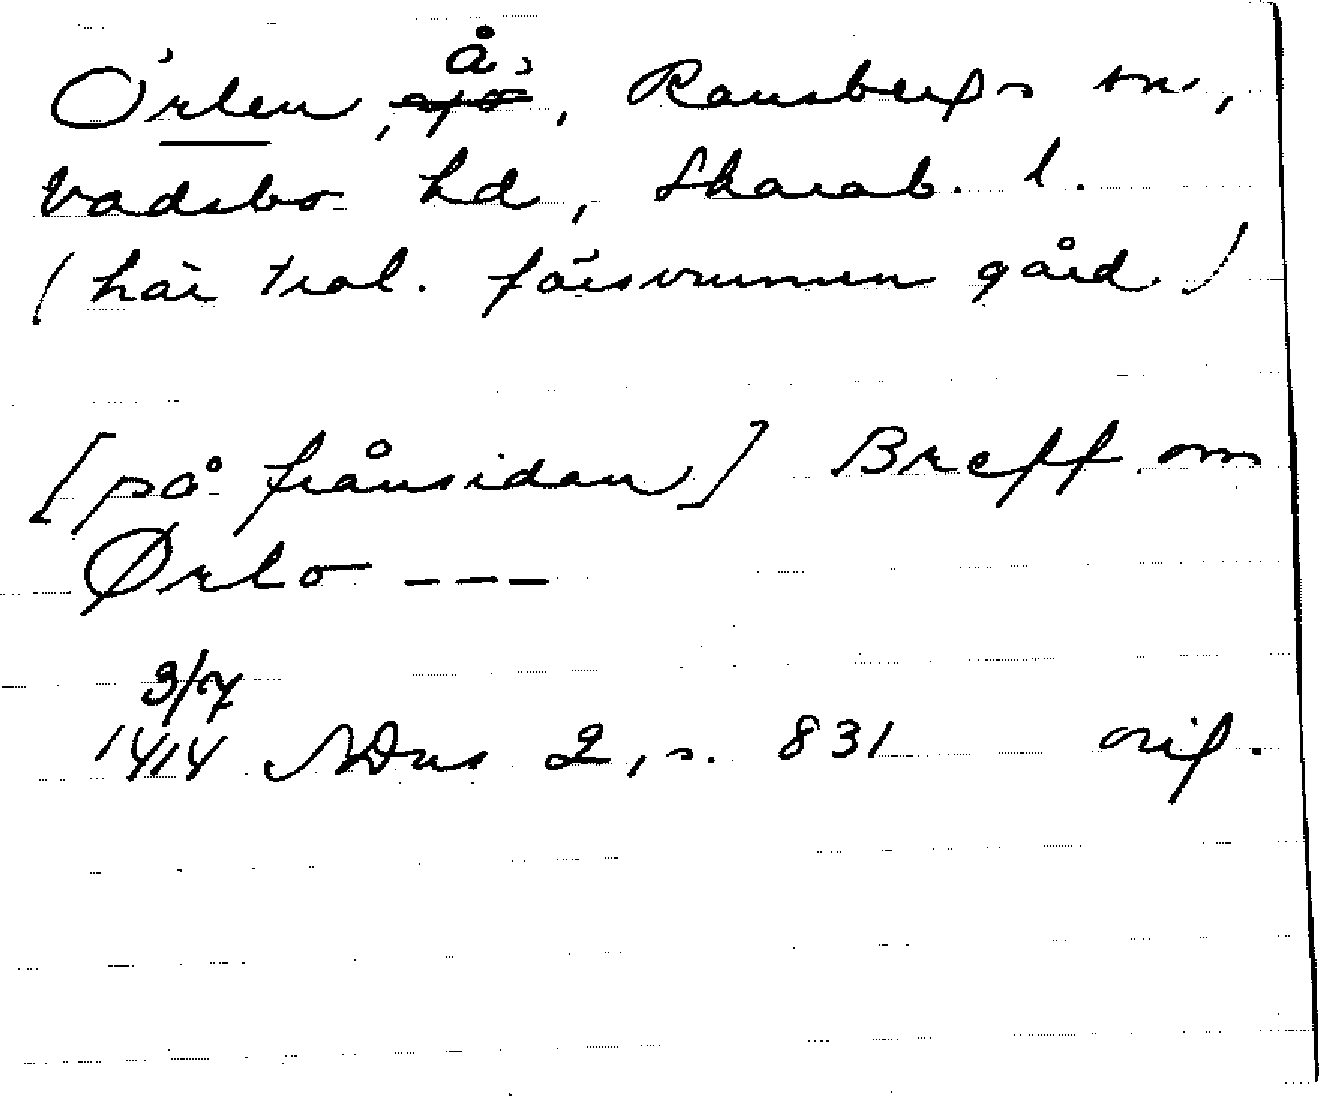 Örlen, å, Ransbergs sn,
Vadsbo hd, Skarab. l.
(här trol. försvunnen gård)
[på frånsidan] Breff om
Ørlo ---
3/7
1414 SDns 2, s. 831 orig.